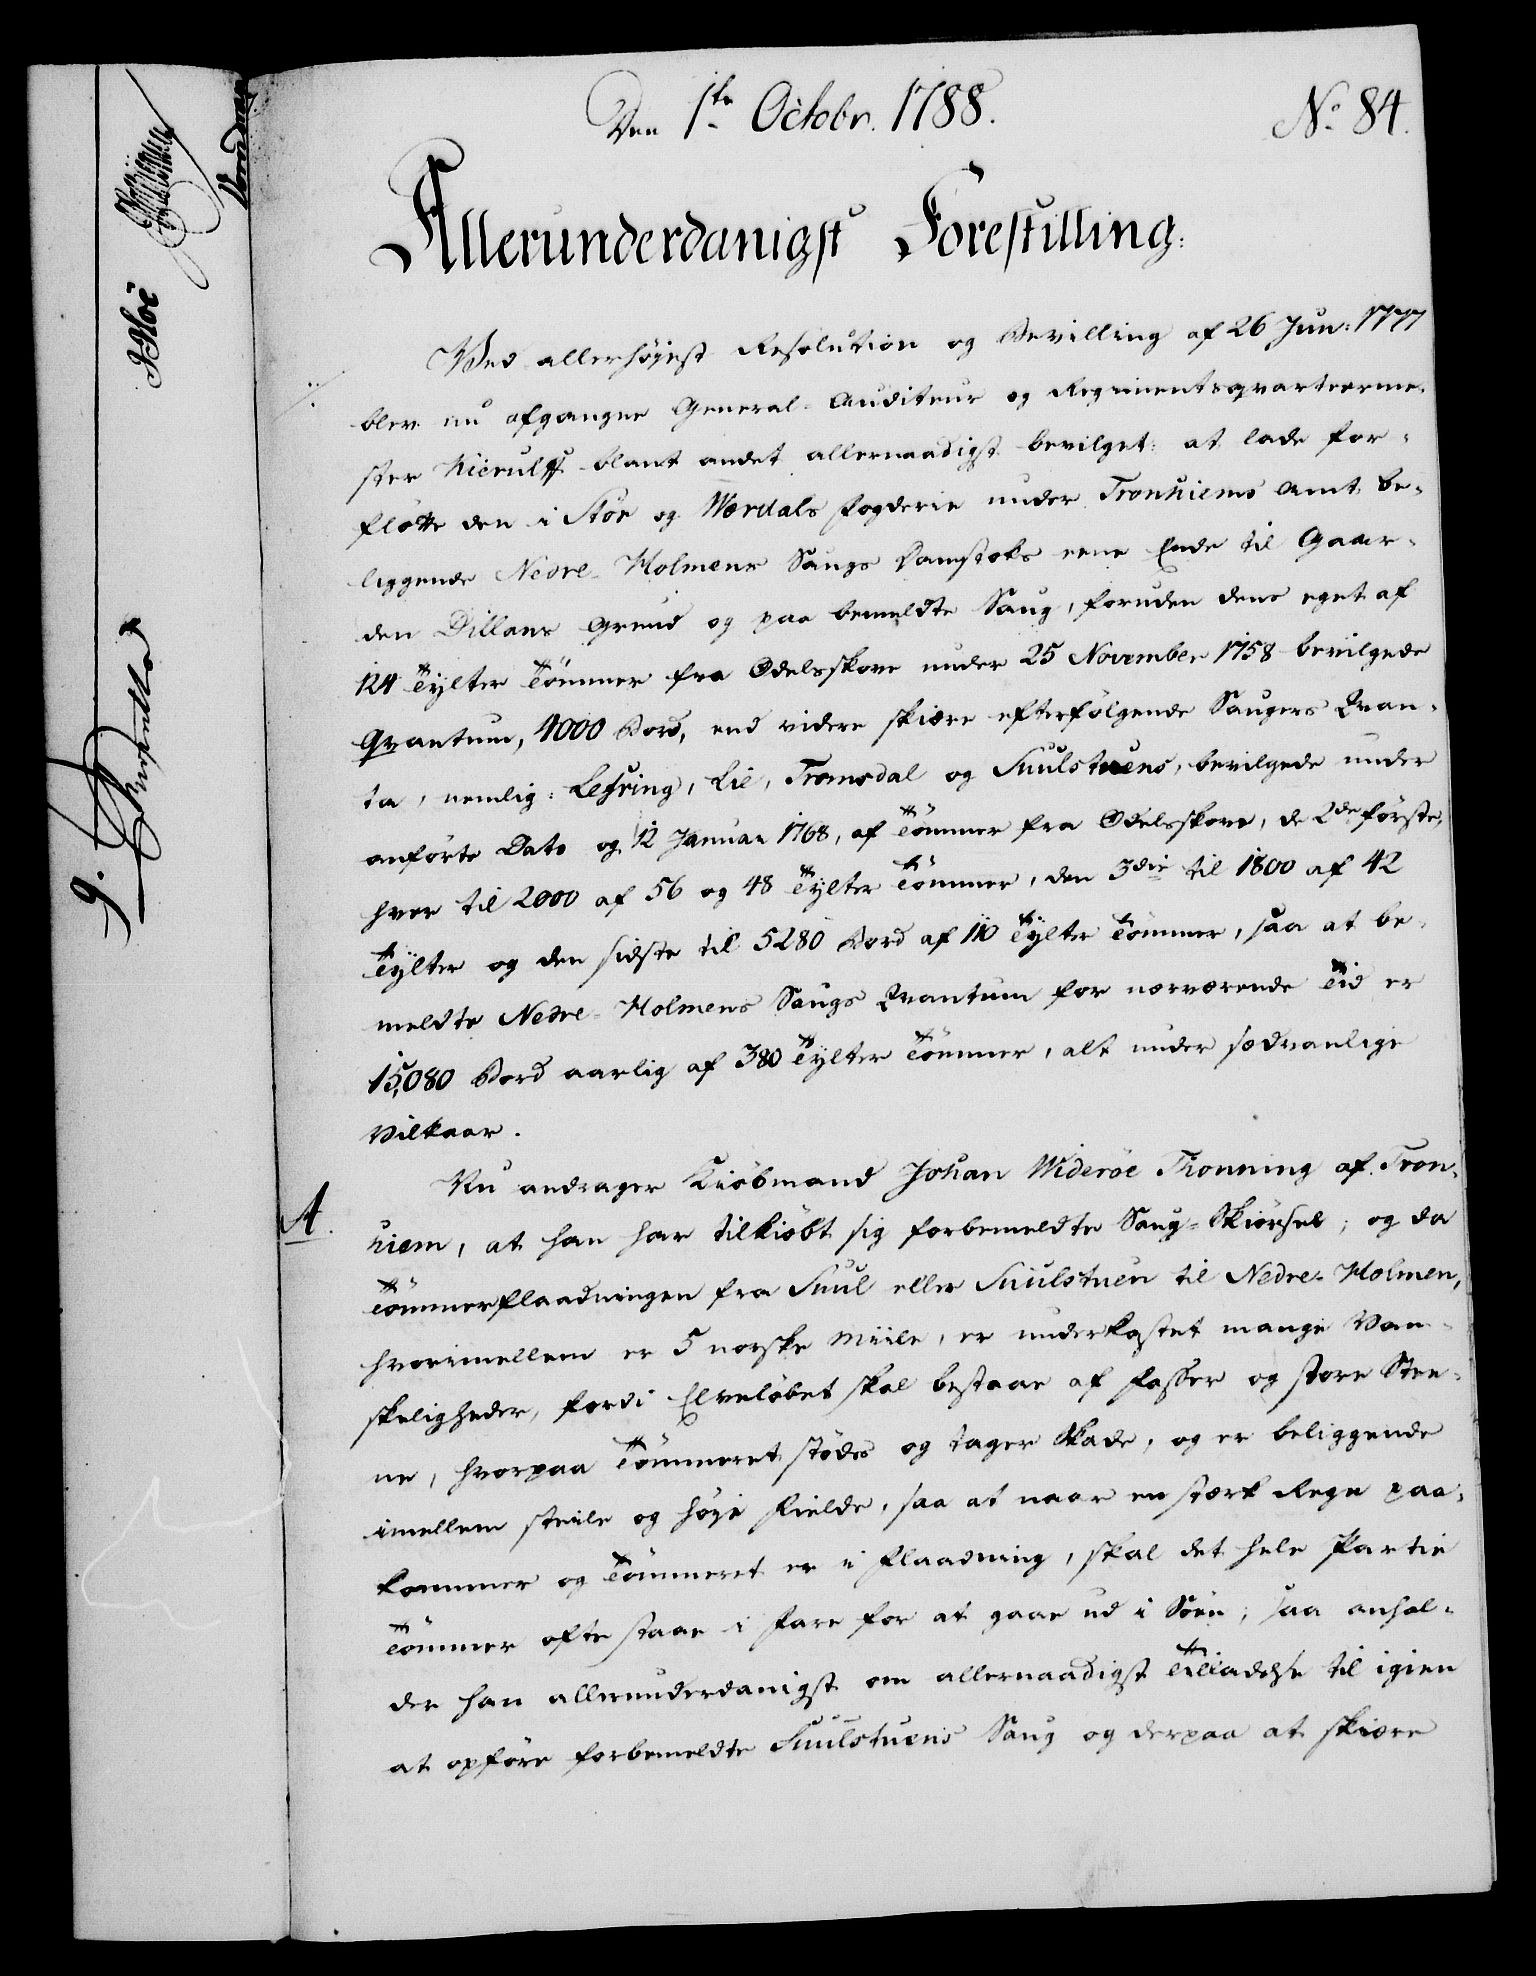 Den 1ste Octobr. 1788.
No 84.
Allerunderdanigst Forestilling.
Ved allerhöjest Resolution og Bevilling af 26 Jun: 1777
blev nu afgangne General-Auditeur og Regimentsqvarteerme-
ster Hierulff blant andet allernaadigst bevilget: at lade for-
flötte den i Stör og Wærdals Fogderie under Tronhiems Amt be-
liggende Nedre-Holmens Saugs Damstoks eene Ende til Gaar-
den Dillans Grund og paa bemeldte Saug, foruden dens eget af
124 Tylter Tömmer fra Odelsskove under 25 November 1758 bevilgede
Qvantum, 4000 Bord, end videre skiære efterfölgende Saugers Qvan-
ta, nemlig: Lefring, Lie, Tromsdal og Suulstuens, bevilgede under
anförte Dato og 12 Januar 1768, af Tömmer fra Odelsskove, de 2de förste,
hver til 2000 af 56 og 48 Tylter Tömmer, den 3die til 1800 af 42
Tylter og den sidste til 5280 Bord af 110 Tylter Tömmer, saa at be-
meldte Nedre-Holmens Saugs Qvantum for nærværende Tid er
15,080 Bord aarlig af 380 Tylter Tömmer, alt under sædvanlige
Vilkaar.
A.
Nu andrager Kiöbmand Johan Wideröe Thonning af Tron-
hiem, at han har tilkiöbt sig forbemeldte Saug-Skiörsel; og da
Tömmerflaadningen fra Suul eller Suulstuen til Nedre-Holmen,
hvorimellem er 5 norske Miile, er underkastet mange Van-
skeligheder, fordi Elvelöbet skal bestaae af Fosser og store Stee-
ne, hvorpaa Tömmeret stödes og tager Skade, og er beliggende
imellem steile og höje Fielde, saa at naar en stærk Regn paa-
kommer og Tömmeret er i Flaadning, skal det hele Partie
Tömmer ofte staae i Fare for at gaae ud i Söen; saa anhol-
der han allerunderdanigst om allernaadigst Tilladelse til igien
at opföre forbemeldte Suulstuens Saug og derpaa at skiære